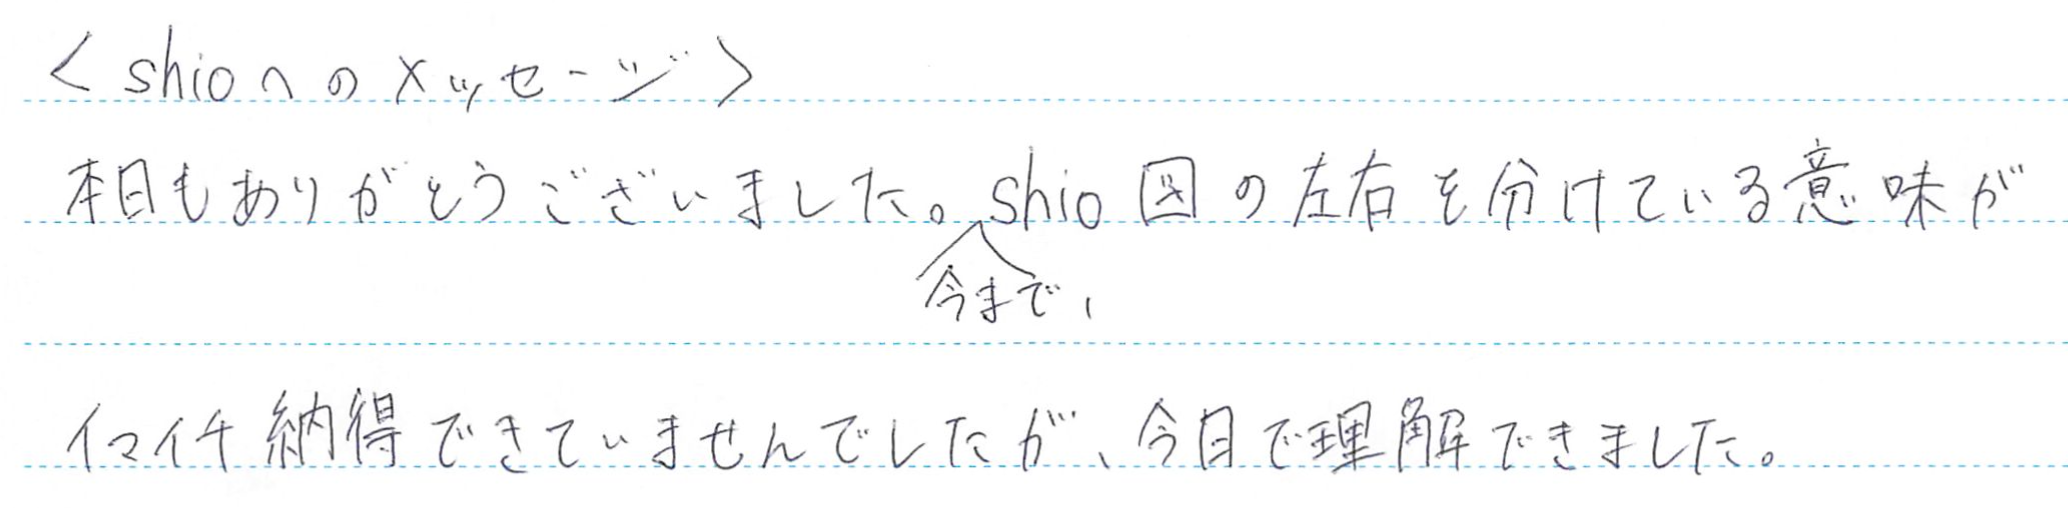 <shioへのメッセージ>
本日もありがとうございました。shio図の左右を分けている意味が
今まで、
イマイチ納得できていませんでしたが、今日で理解できました。